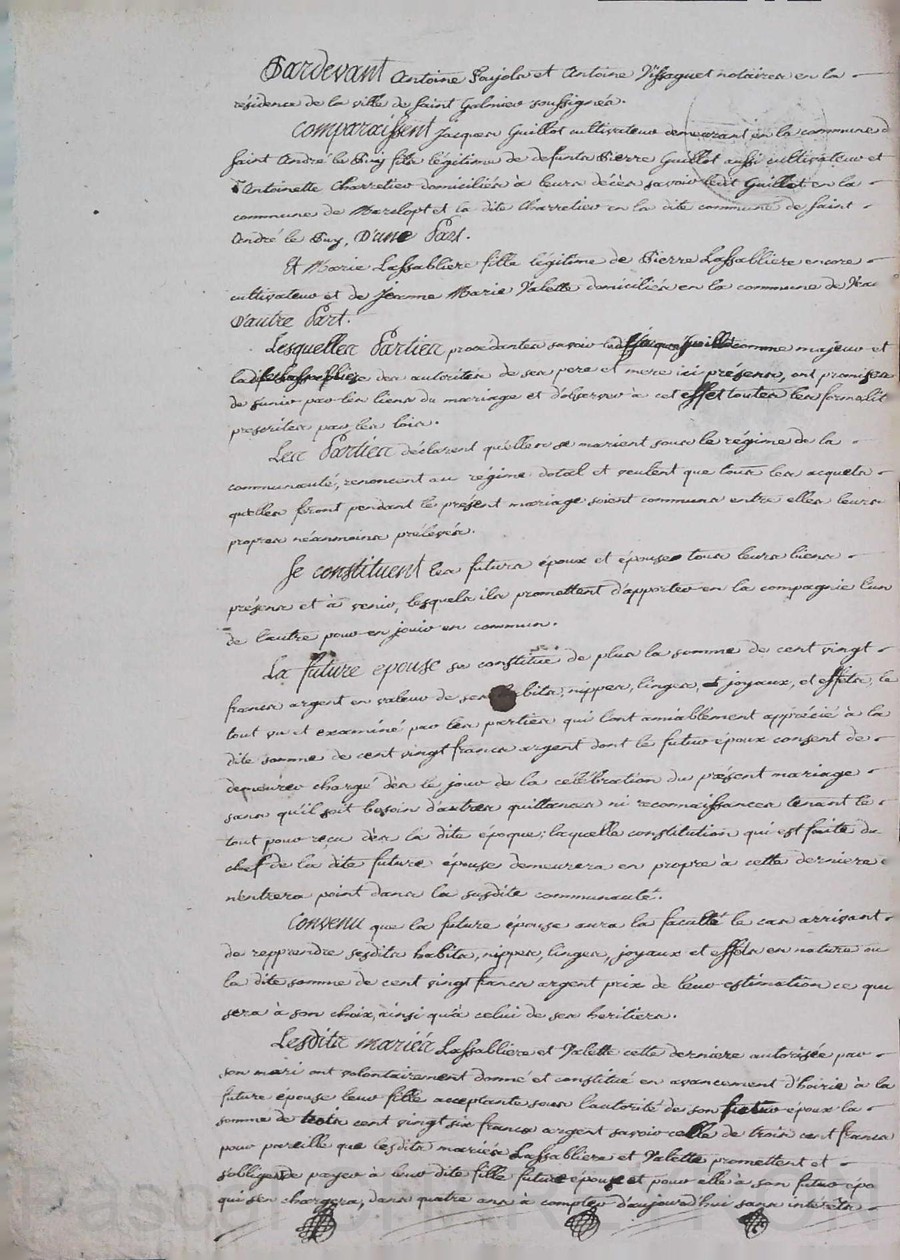 Pardevant Antoine Pajola et Antoine Vissaguet notaires en la
résidence de la ville de Saint Galmier soussignés.
Comparaissent Jacques Guillot cultivateur demeurant en la commune d
Saint André le Puy fils légitime de defunts Pierre Guillot aussi cultivateur et
Antoinette Charretier domiciliés à leurs décès savoir ledit Guillot en la
commune de Marclopt et la dite Charretier en la dite commune de Saint
André le Puy, D'une Part.
Et Marie Lassablliere fille légitime de Pierre Lassablliere encore
cultivateur et de Jeanne Marie Valette domiciliés en la commune de Veau
D'autre Part.
Lesquelles Parties procedantes savoir led. Jacques Guillot comme majeur et
la dite Lassablliere des autorités de ses pere et mere ici présens, ont promis
de s'unir par les liens du mariage et d'observer à cet effet toutes les formalit
prescrites par les lois.
Les Parties déclarent qu'elles se marient sous le régime de la
communauté, renoncent au régime dotal et veulent que tous les acquets
qu'elles feront pendant le présent mariage soient communs entre elles leurs
propres néanmoins prélevés.
Se constituent les futurs époux et épouse tous leurs biens
présens et à venir, lesquels ils promettent d'apporter en la compagnie l'un
de l'autre pour en jouir en commun.
La future epouse se constitue de plus la somme de cent vingt
francs argent en valeur de ses habits, nippes, linges, et joyaux, et effets, le
tout vu et examiné par les parties qui l'ont amiablement apprécié à la
dite somme de cent vingt francs argent dont le futur époux consent de
demeurer chargé dès le jour de la célébration du présent mariage
sans qu'il soit besoin d'autres quittances ni reconnaissances tenant le
tout pour reçu dès la dite époque; laquelle constitution qui est faite du
chef de la dite future épouse demeurera en propre à cette derniere
n'entrera point dans la susdite communauté.
Convenu que la future épouse aura la faculté le cas arrivant
de repprendre sesdits habits, nippes, linges, joyaux et effets en nature ou
la dite somme de cent vingt francs argent prix de leur estimation ce qui
sera à son choix, ainsi qu'à celui de ses heritiers.
Lesdits mariés Lassablliere et Valette cette derniere autorisée par
son mari ont volontairement donné et constitué en avancement d'hoirie à la
future épouse leur fille acceptante sous l'autorité de son futur époux la
somme de trois cent vingt six francs argent savoir celle de trois cent francs
pour pareille que lesdits mariés Lassablliere et Valette promettent et
s'obligent de payer à leur dite fille future épouse et pour elle à son futur épo
qui s'en chargera, dans quatre ans à compter d'aujourd'hui sans intérets